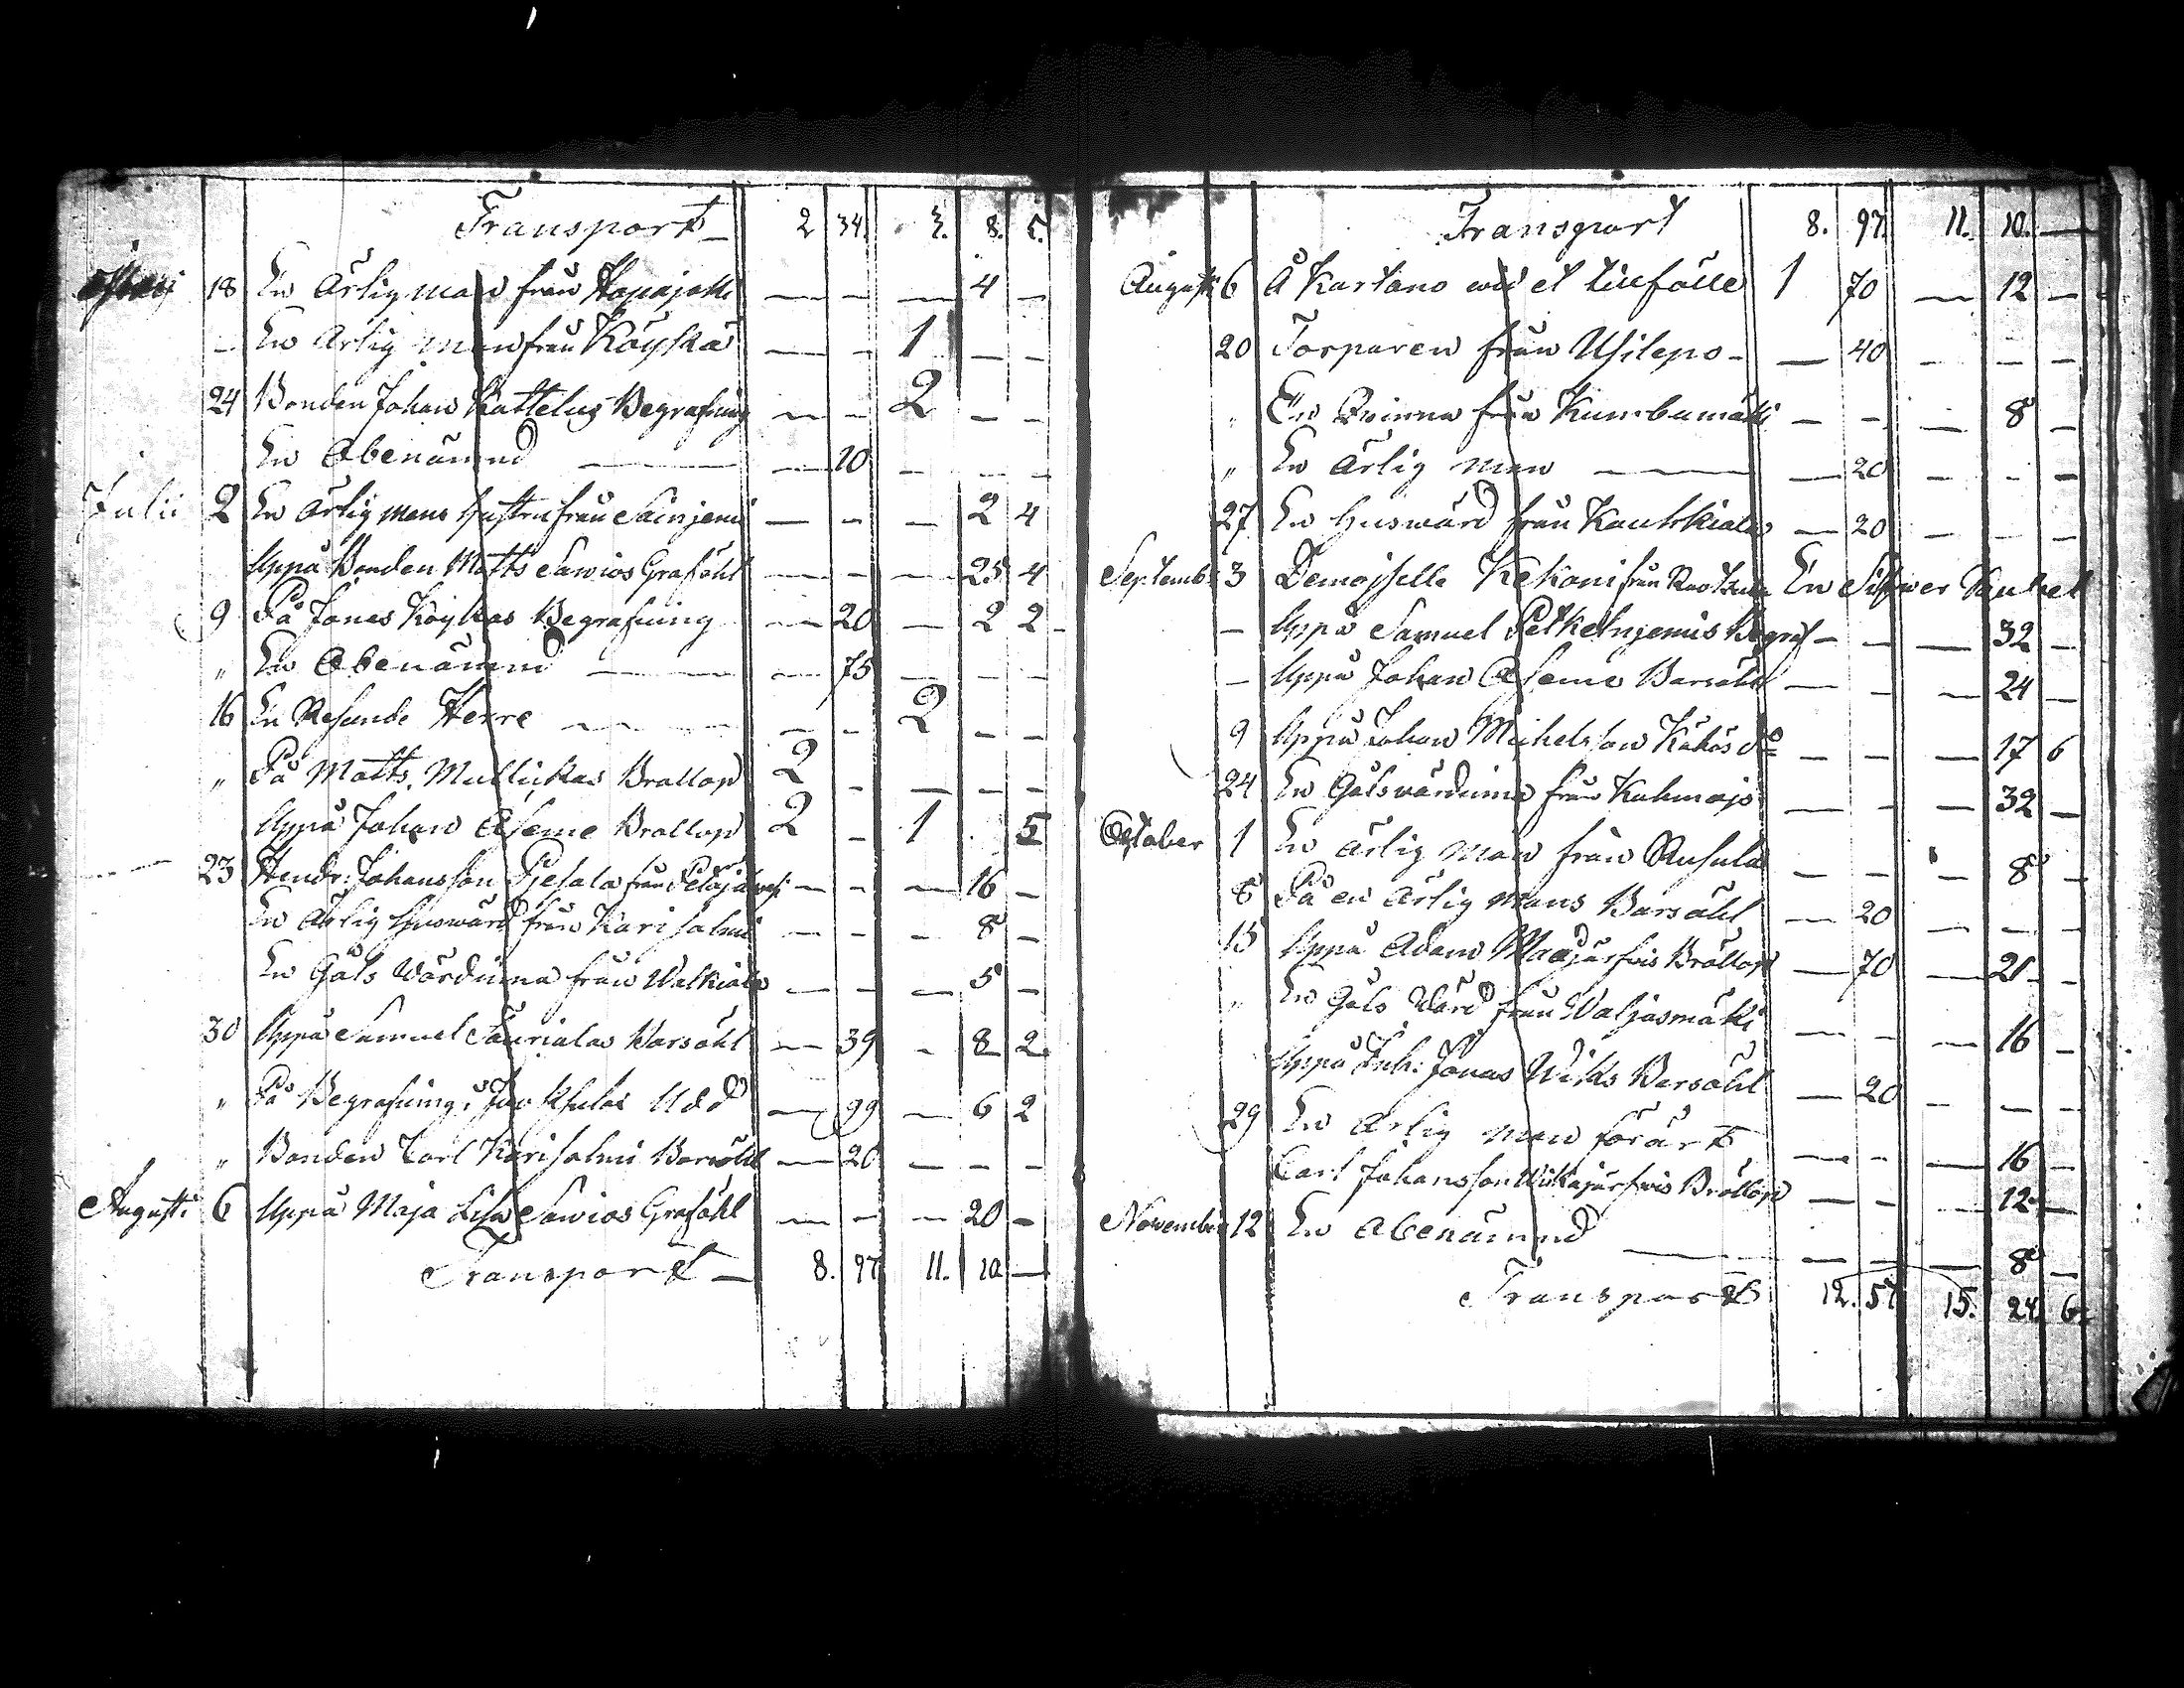 Transport – 2 34. 3. 8. 5.
Maij 18 En Ärlig man från Hapajoki — — — 4 —
— En Ärlig man från Köykkä — — 1 — —
24 Bonden Johan Kattelus Begrafning — — 2 — —
En Obenämnd — — 10 — — —
Julii 2 En Ärlig mans hustru från Säinjemi — — — 2 4
Uppå Bonden Matts Sawios Graföhl — — — 25 4
9 På Jonas Köykäs Begrafning — 20 — 2 2
„ En Obenämnd — — 75 — — —
16 En Resande Herre — — — 2 — —
„ På Matts Mullickas Bröllop 2 — — — —
Uppå Johan Aseme Bröllop 2 — 1 . 5
23 Hendr: Johansson Pjesala från — — — 16 —
En Ärlig husward från Karisalmi — — — 8 —
En Gåls Värdinna från Walkiala — — — 5 —
30 Uppå Samuel Saurialas Barsöhl — 39 — 8 2
„ På Begrafning i Udd — 99 — 6 2
„ Bonden Carl Karisalmi Barsöhl — 20 — — —
Augusti 6 Uppå Maja Lisa Sawios Graföhl — — — 20 —
Transport — 8. 97 11. 10 —
Transport 8. 97. 11. 10. —
Augusti 6 Å Kartano wid et tillfälle 1 70 — 12 —
20 Torparen från Usilepo — — 40 — — —
„ En Qvinna från Kumbumäki — — — 8 —
„ En Ärlig man — — 20 — — —
27 En husward från Kautskiala — 20 — — —
Septemb: 3 Demoiselle Kekoni från En Silfwer
— Uppå Samuel Pelkelnjemis Begraf — — — 32 —
— Uppå Johan Aseme Barsöhl — — — 24 —
9 Uppå Johan Michelsson Kukos do — — — 17 6
24 En Gålswärdinna från Kuhmajo — — — 32 —
October 1 En Ärlig man från Rusula — — — 8 —
8 På en Ärlig mans Barsöhl — 20 — — —
15 Uppå Adam Maajärfwis Bröllop — 70 — 21 —
„ En Gåls Värd från Waljasmäki — — — 16 —
Uppå Inh: Jonas Wiks Barsöhl — 20 — — —
29 En Ärlig man förärt — — — 16 —
Carl Johansson Wiskajärfwis Bröllop — — — 12 —
November 12 En Obenämnd — — — — 8 —
Transport 12. 57 15. 24 6.